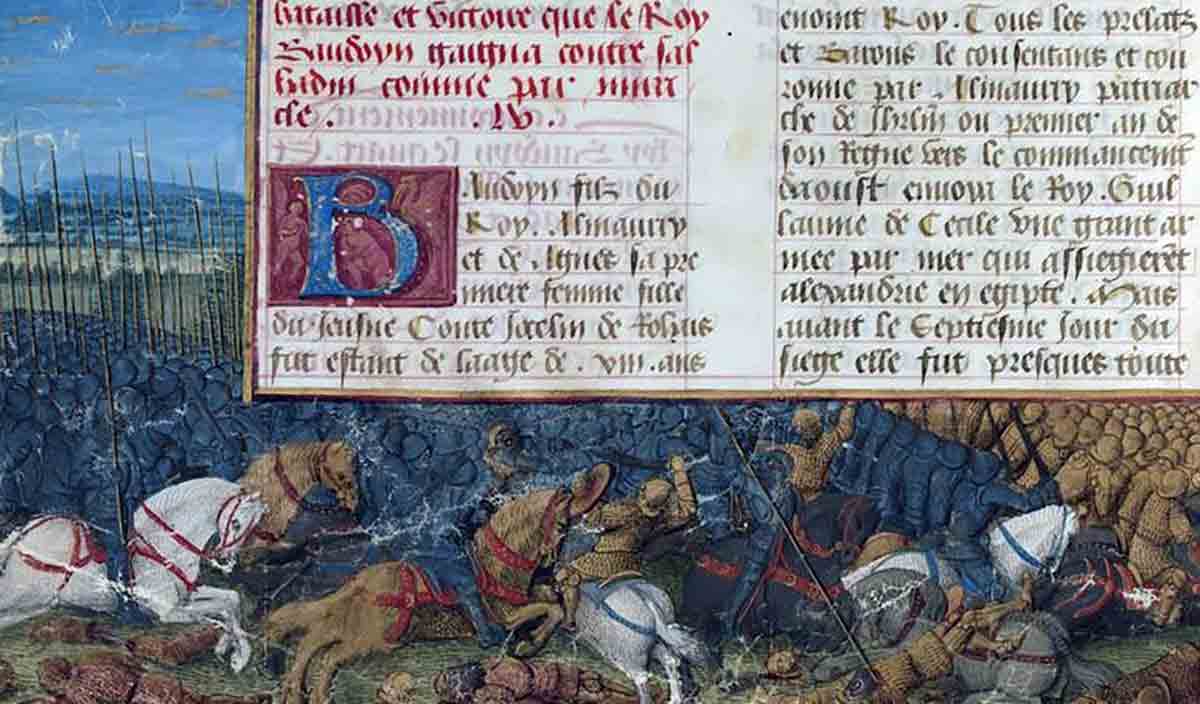 bataille et victoire que le Roy
Baudoyn gaigna contre sal
hadin comme par mira
cle. .LV.
Baudoyn filz du
Roy. Almaury
et de Agnes sa pre
miere femme fille
du Jeusne Conte Jocelin de Rohais
fut estant de laage de. viii. ans
Roy. Tous les prelatz
et Barons le consentans et cou
ronne par. Almaury patriar
che de Jhrlm ou premier an de
son Regne vers le commancemt
daoust envoya le Roy. Guil
laume de Cecile vne grant ar
mee par mer qui assiegerēt
alexandrie en egipte. Mais
auant le Septiesme Jour du
siege elle fut presques toute